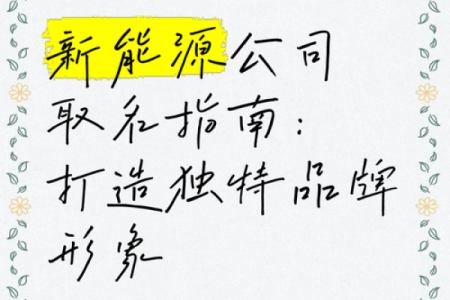 新能源公司
取名指南：
打造独特品牌
形象